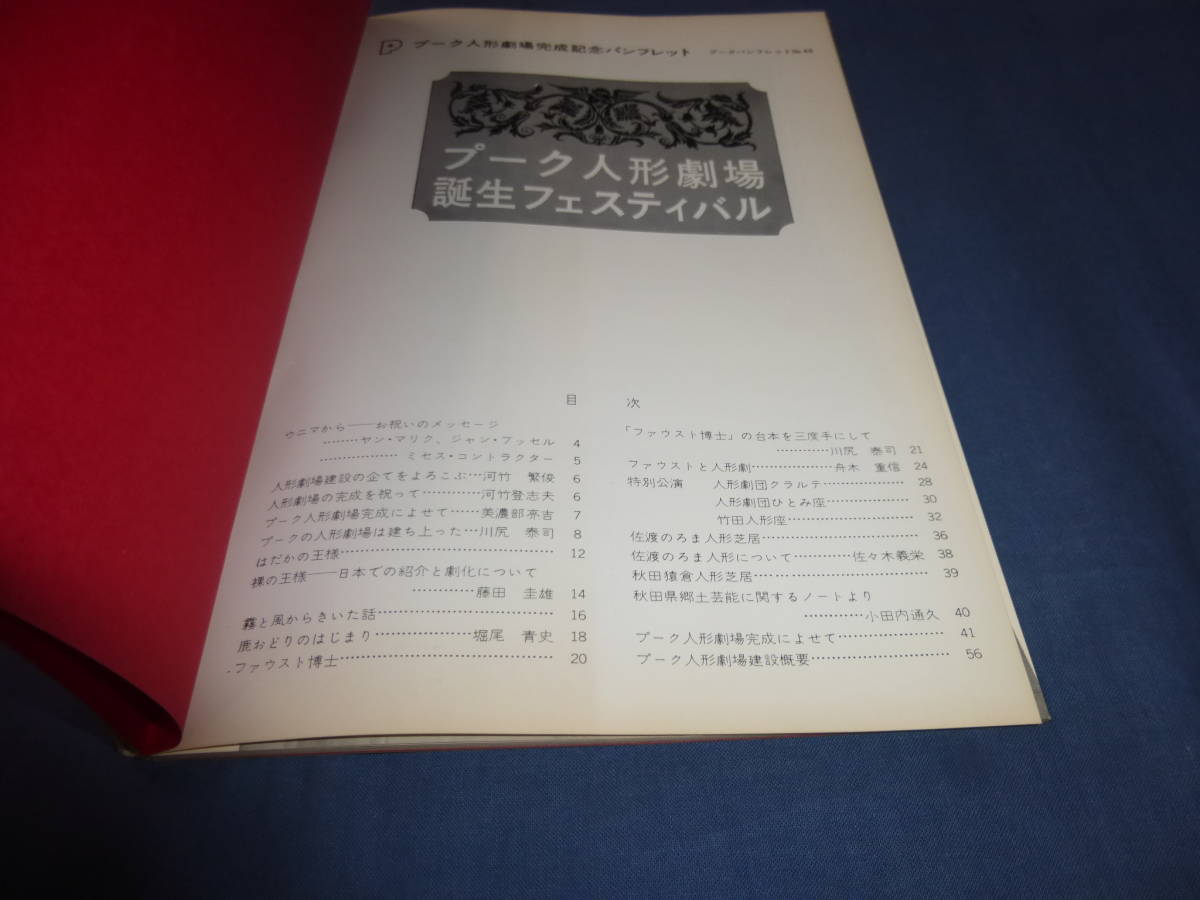 プーク人形劇場完成記念パンフレット プークパンフレットNo.45
プーク人形劇場
誕生フェスティバル
目 次
ウニマから――お祝いのメッセージ
………ヤン・マリク、ジャン・ブッセル 4
………………ミセス・コントラクター 5
人形劇場建設の企てをよろこぶ…河竹 繁俊 6
人形劇場の完成を祝って…………河竹登志夫 6
プーク人形劇場完成によせて……美濃部亮吉 7
プークの人形劇場は建ち上った…川尻 泰司 8
はだかの王様……………………………… 12
裸の王様――日本での紹介と劇化について
…………藤田 圭雄 14
霧と風からきいた話……………………… 16
鹿おどりのはじまり………………堀尾 青史 18
ファウスト博士…………………………… 20
「ファウスト博士」の台本を三度手にして
…………川尻 泰司 21
ファウストと人形劇………………舟木 重信 24
特別公演 人形劇団クラルテ……………… 28
人形劇団ひとみ座……………… 30
竹田人形座……………… 32
佐渡のろま人形芝居……………………… 36
佐渡のろま人形について…………佐々木義栄 38
秋田猿倉人形芝居………………………… 39
秋田県郷土芸能に関するノートより
…………小田内通久 40
プーク人形劇場完成によせて…………… 41
プーク人形劇場建設概要………………… 56